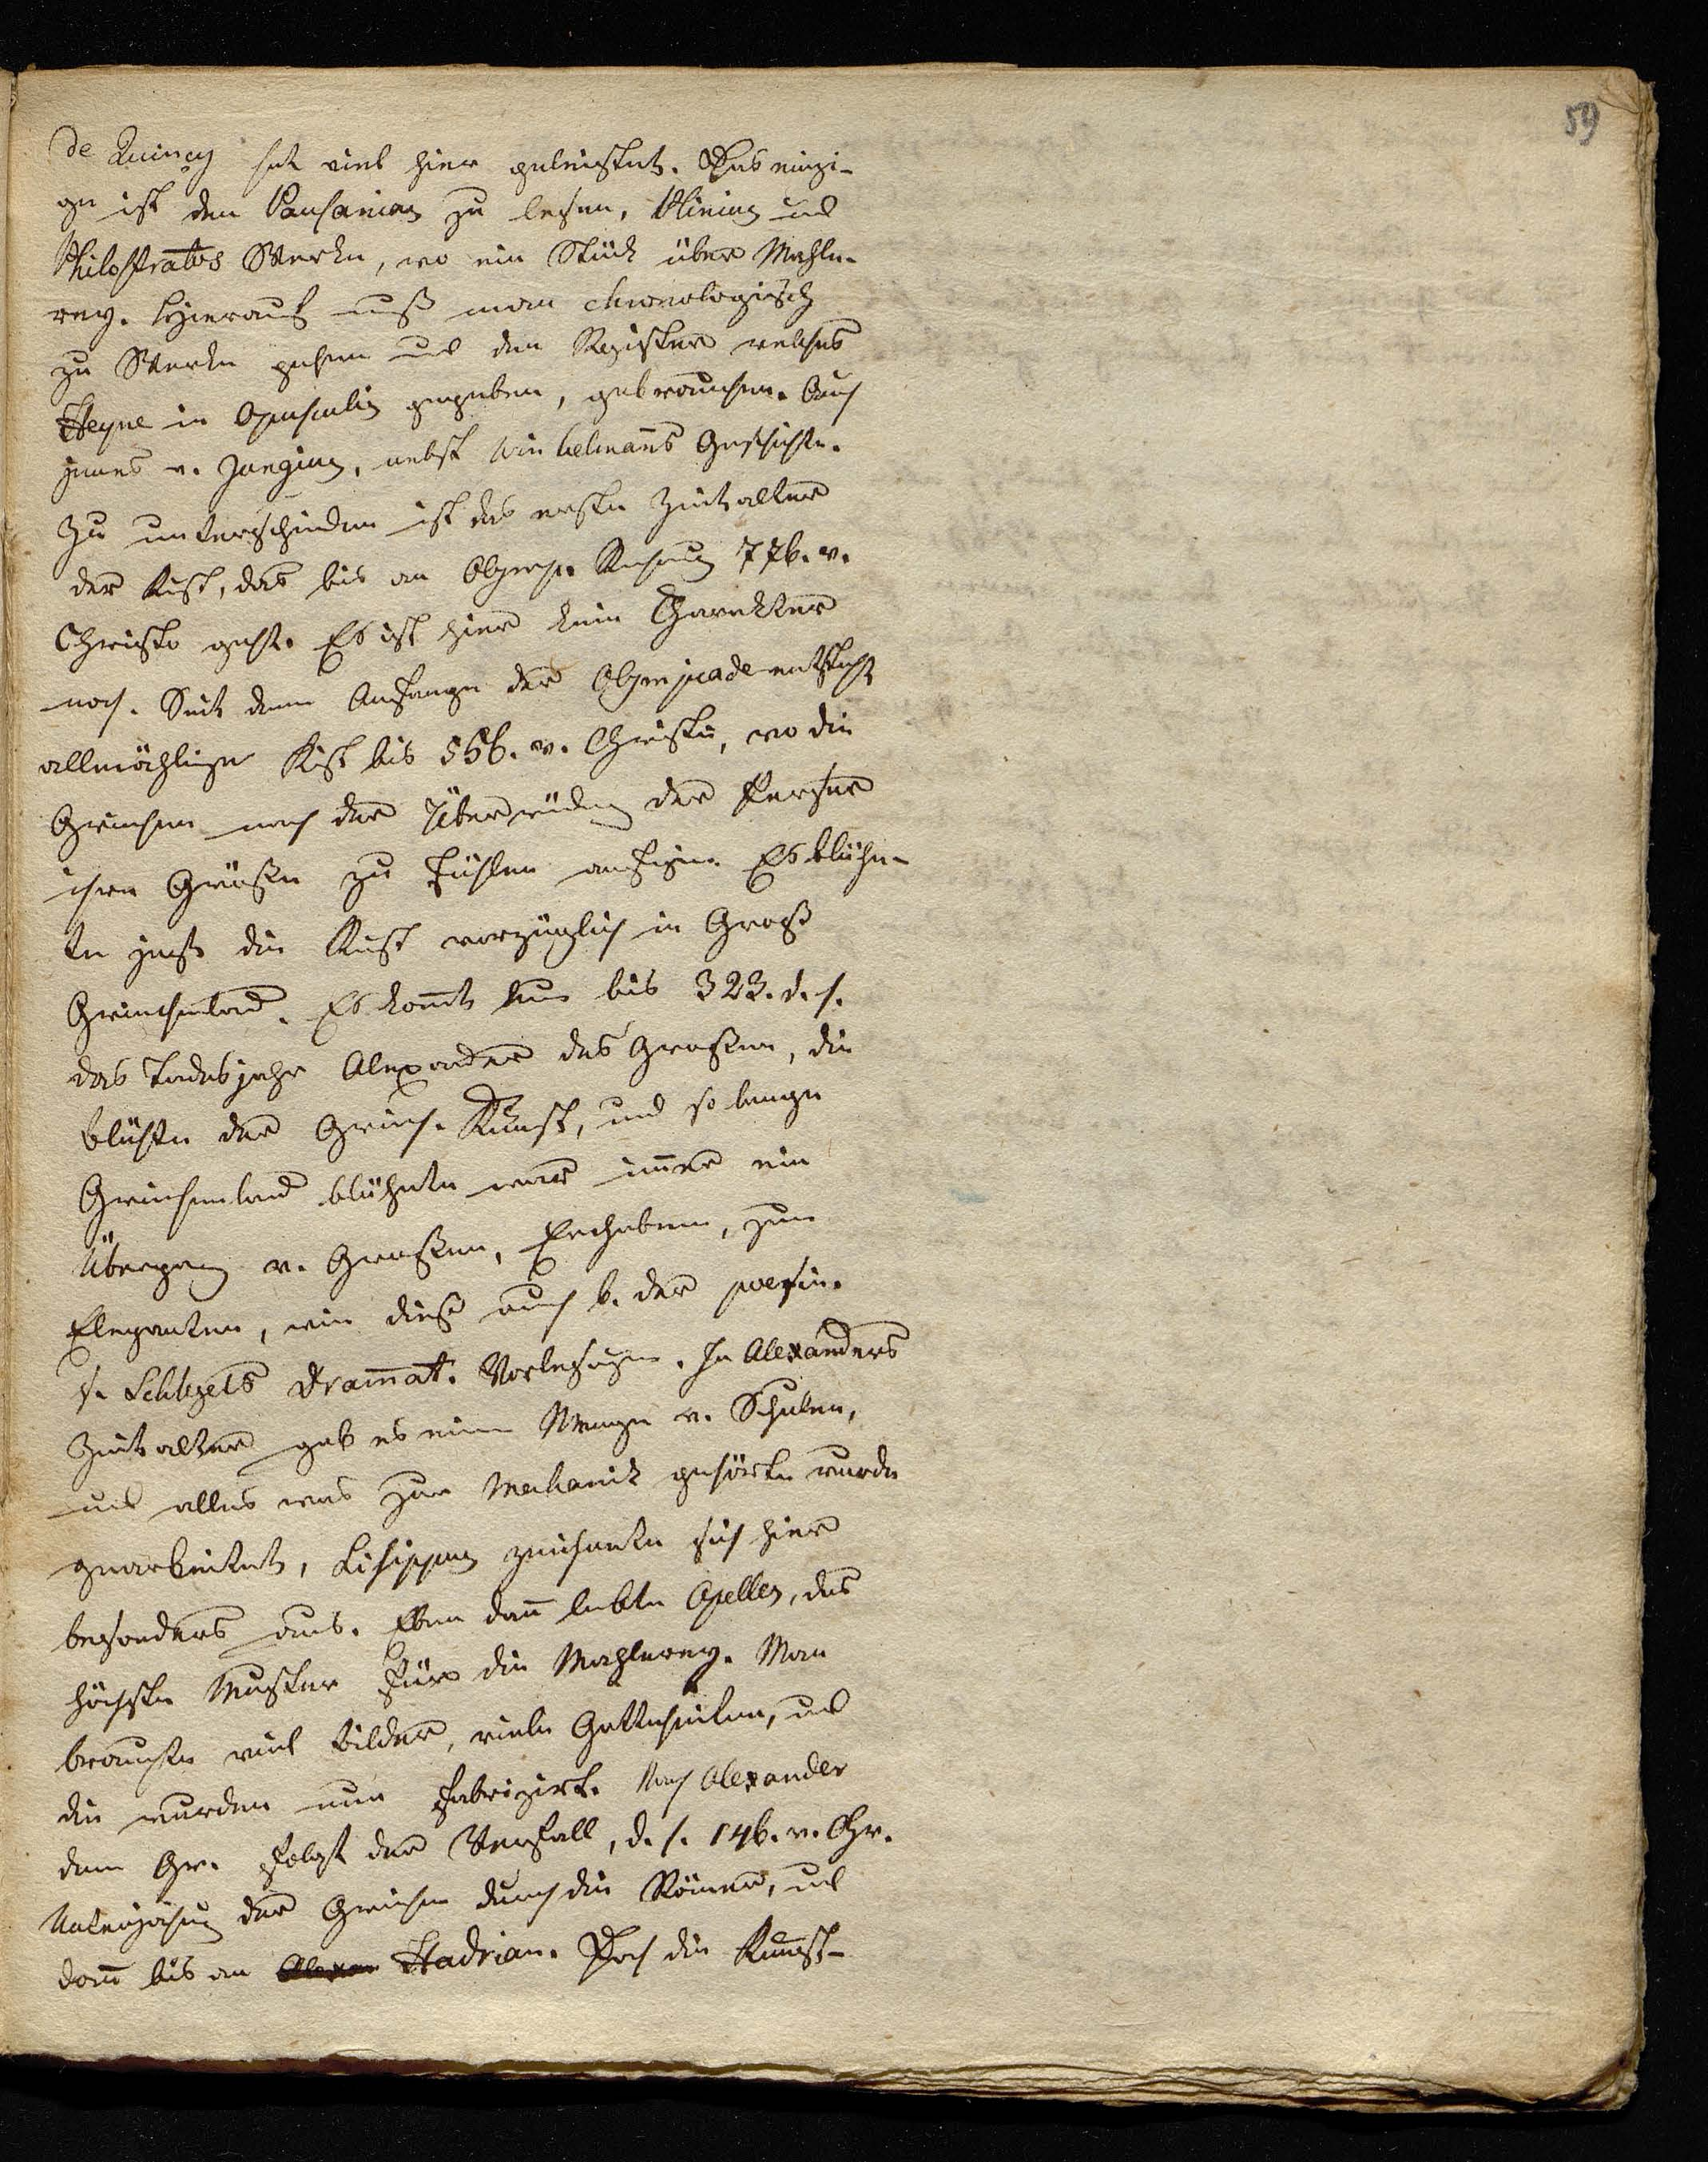 59
de Quincy hat viel hier geleistet. Das einzi-
ge ist den Pausanias zu lesen, Plinius und
Philostratos Werke, wo ein Stück über Mahle-
rey. Hierauf muß man chronologisch
zu Werke gehen und den Register welches
Heyne in Opusculis gegeben, gebrauchen. Auch
jenes v. Junius, nebst Winkelmanns Geschichte.
Zu unterscheiden ist das erste Zeitalter
der Kunst, das bis an Olymp. Rechnung 776. v.
Christo geht. Es ist hier kein Charakter
noch. Seit dem Anfange der Olympiade entsteht
allmächlige Kunst bis 556. v. Christi, wo die
Griechen nach der Überwindung der Perser
ihre Größe zu fühlen anfingen. Es blühe-
te jetzt die Kunst vorzüglich in Groß
Griechenland. Es kommt nun bis 323. d. h.
das Todesjahr Alexander des Großen, die
blüthe der Griech. Kunst, und so lange
Griechenland blühete war immer ein
Übergang v. Großen, Erhabenen, zum
Eleganten, wie dieß auch b. der poesie.
s. Schlegels Drammat. Vorlesungen. In Alexanders
Zeitalter gab es eine Menge v. Schulen,
und alles was zur Mechanick gehörte wurde
gearbeitet, Lisippus zeichnete sich hier
besonders aus. Eben dann lebte Apelles, das
höchste Muster für die Mahlerey. Man
brauchte viel bilder, viele Gottheiten, und
die wurden nun fabrizirt. Nach Alexander
dem Gr. folgt der Verfall, d. h. 146. v. Chr.
Unterjochung der Griechen durch die Römer, und
dann bis an Hadrian. Doch die Kunst-